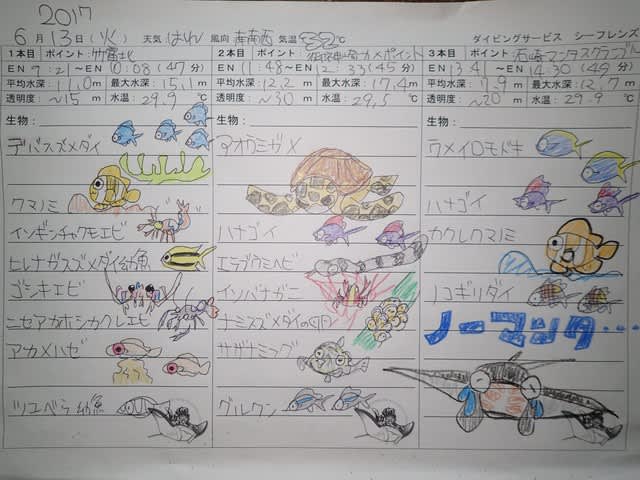 2017
6月13日(火) 天気 はれ 風向 南南西 気温 32℃ ダイビングサービス シーフレンズ
1本目 ポイント 竹富北
EN 9:21～EN 10:08(47分)
平均水深: 11.0m 最大水深: 15.1m
透明度: ~15m 水温: 29.9℃
生物:
デバスズメダイ
クマノミ
イソギンチャクモエビ
ヒレナガスズメダイ幼魚
ゴシキエビ
ニセアカホシカクレエビ
アカメハゼ
ツユベラ幼魚
2本目 ポイント カメポイント
EN 11:48～EN 12:33(45分)
平均水深: 12.2m 最大水深: 17.4m
透明度: ~30m 水温: 29.5℃
生物:
アオウミガメ
ハナゴイ
エラブウミヘビ
イソバナガニ
ナミスズメダイの卵
サザナミフグ
グルクン
3本目 ポイント 石崎マンタスクランブル
EN 13:41～EN 14:30(49分)
平均水深: 7.9m 最大水深: 12.7m
透明度: ~20m 水温: 29.9℃
生物:
ウメイロモドキ
ハナゴイ
カクレクマノミ
ノコギリダイ
ノーマンタ・・・